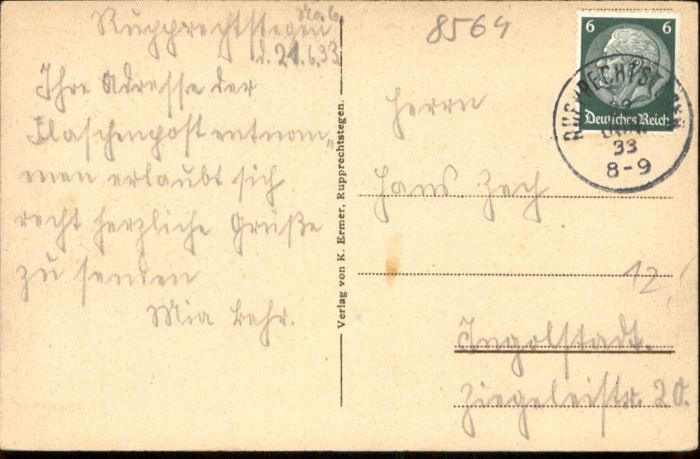 Rupprechtstegen No. 6.
d. 21.6.33
Ihre Adresse der
Flaschenpost entnom-
men erlaubt sich
recht herzliche Grüße
zu senden
Mia Behr.
Verlag von K. Ermer, Rupprechtstegen.
8564
6 6
Deutsches Reich
33
8-9
Herrn
Hans Zech
12,
Ingolstadt.
Ziegeleistr. 20.